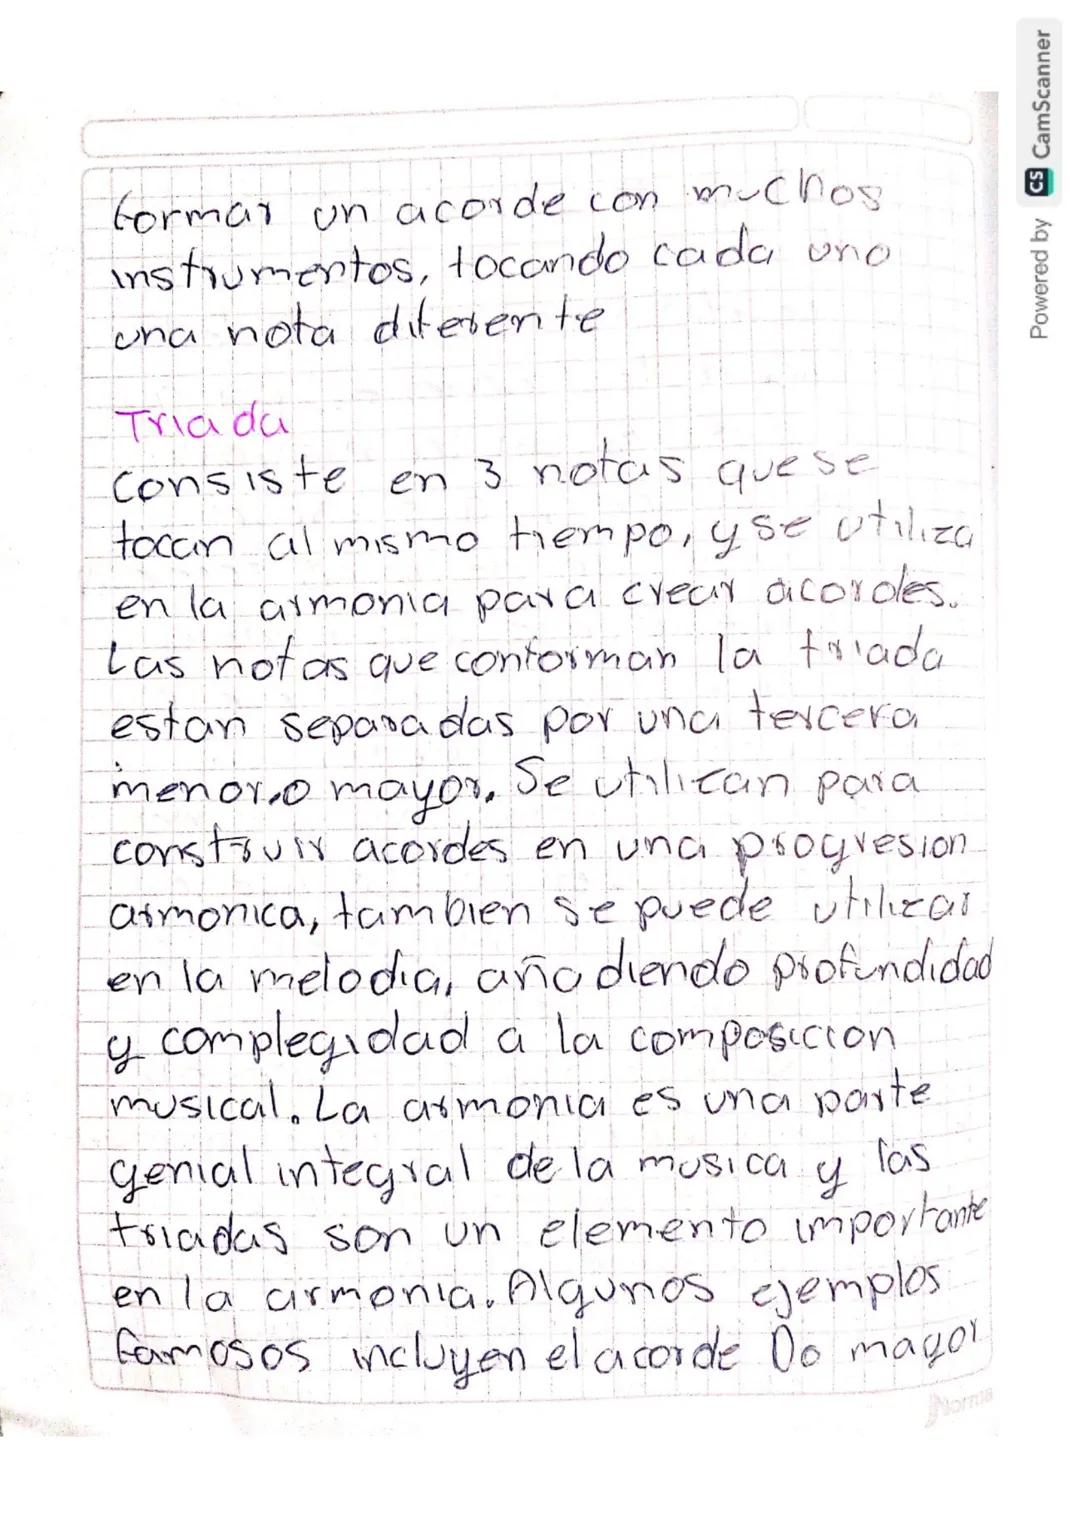 formar un acorde con muchos
instrumentos, tocando cada uno
una nota diferente
Triada
consiste en 3 notas que se
tocan al mismo tiempo, y se utiliza
en la armonia para crear acordes.
Las notas que conforman la triada
estan separadas por una tercera
menor o mayor. Se utilizan para
construir acordes en una progresion
armonica, tambien se puede utilizar
en la melodia, añadiendo profundidad
y complegidad a la composicion
musical. La armonia es una parte
genial integral de la musica y las
triadas son un elemento importante
en la armonia. Algunos ejemplos
famosos incluyen el acorde Do mayor
Norma
Powered by CS CamScanner